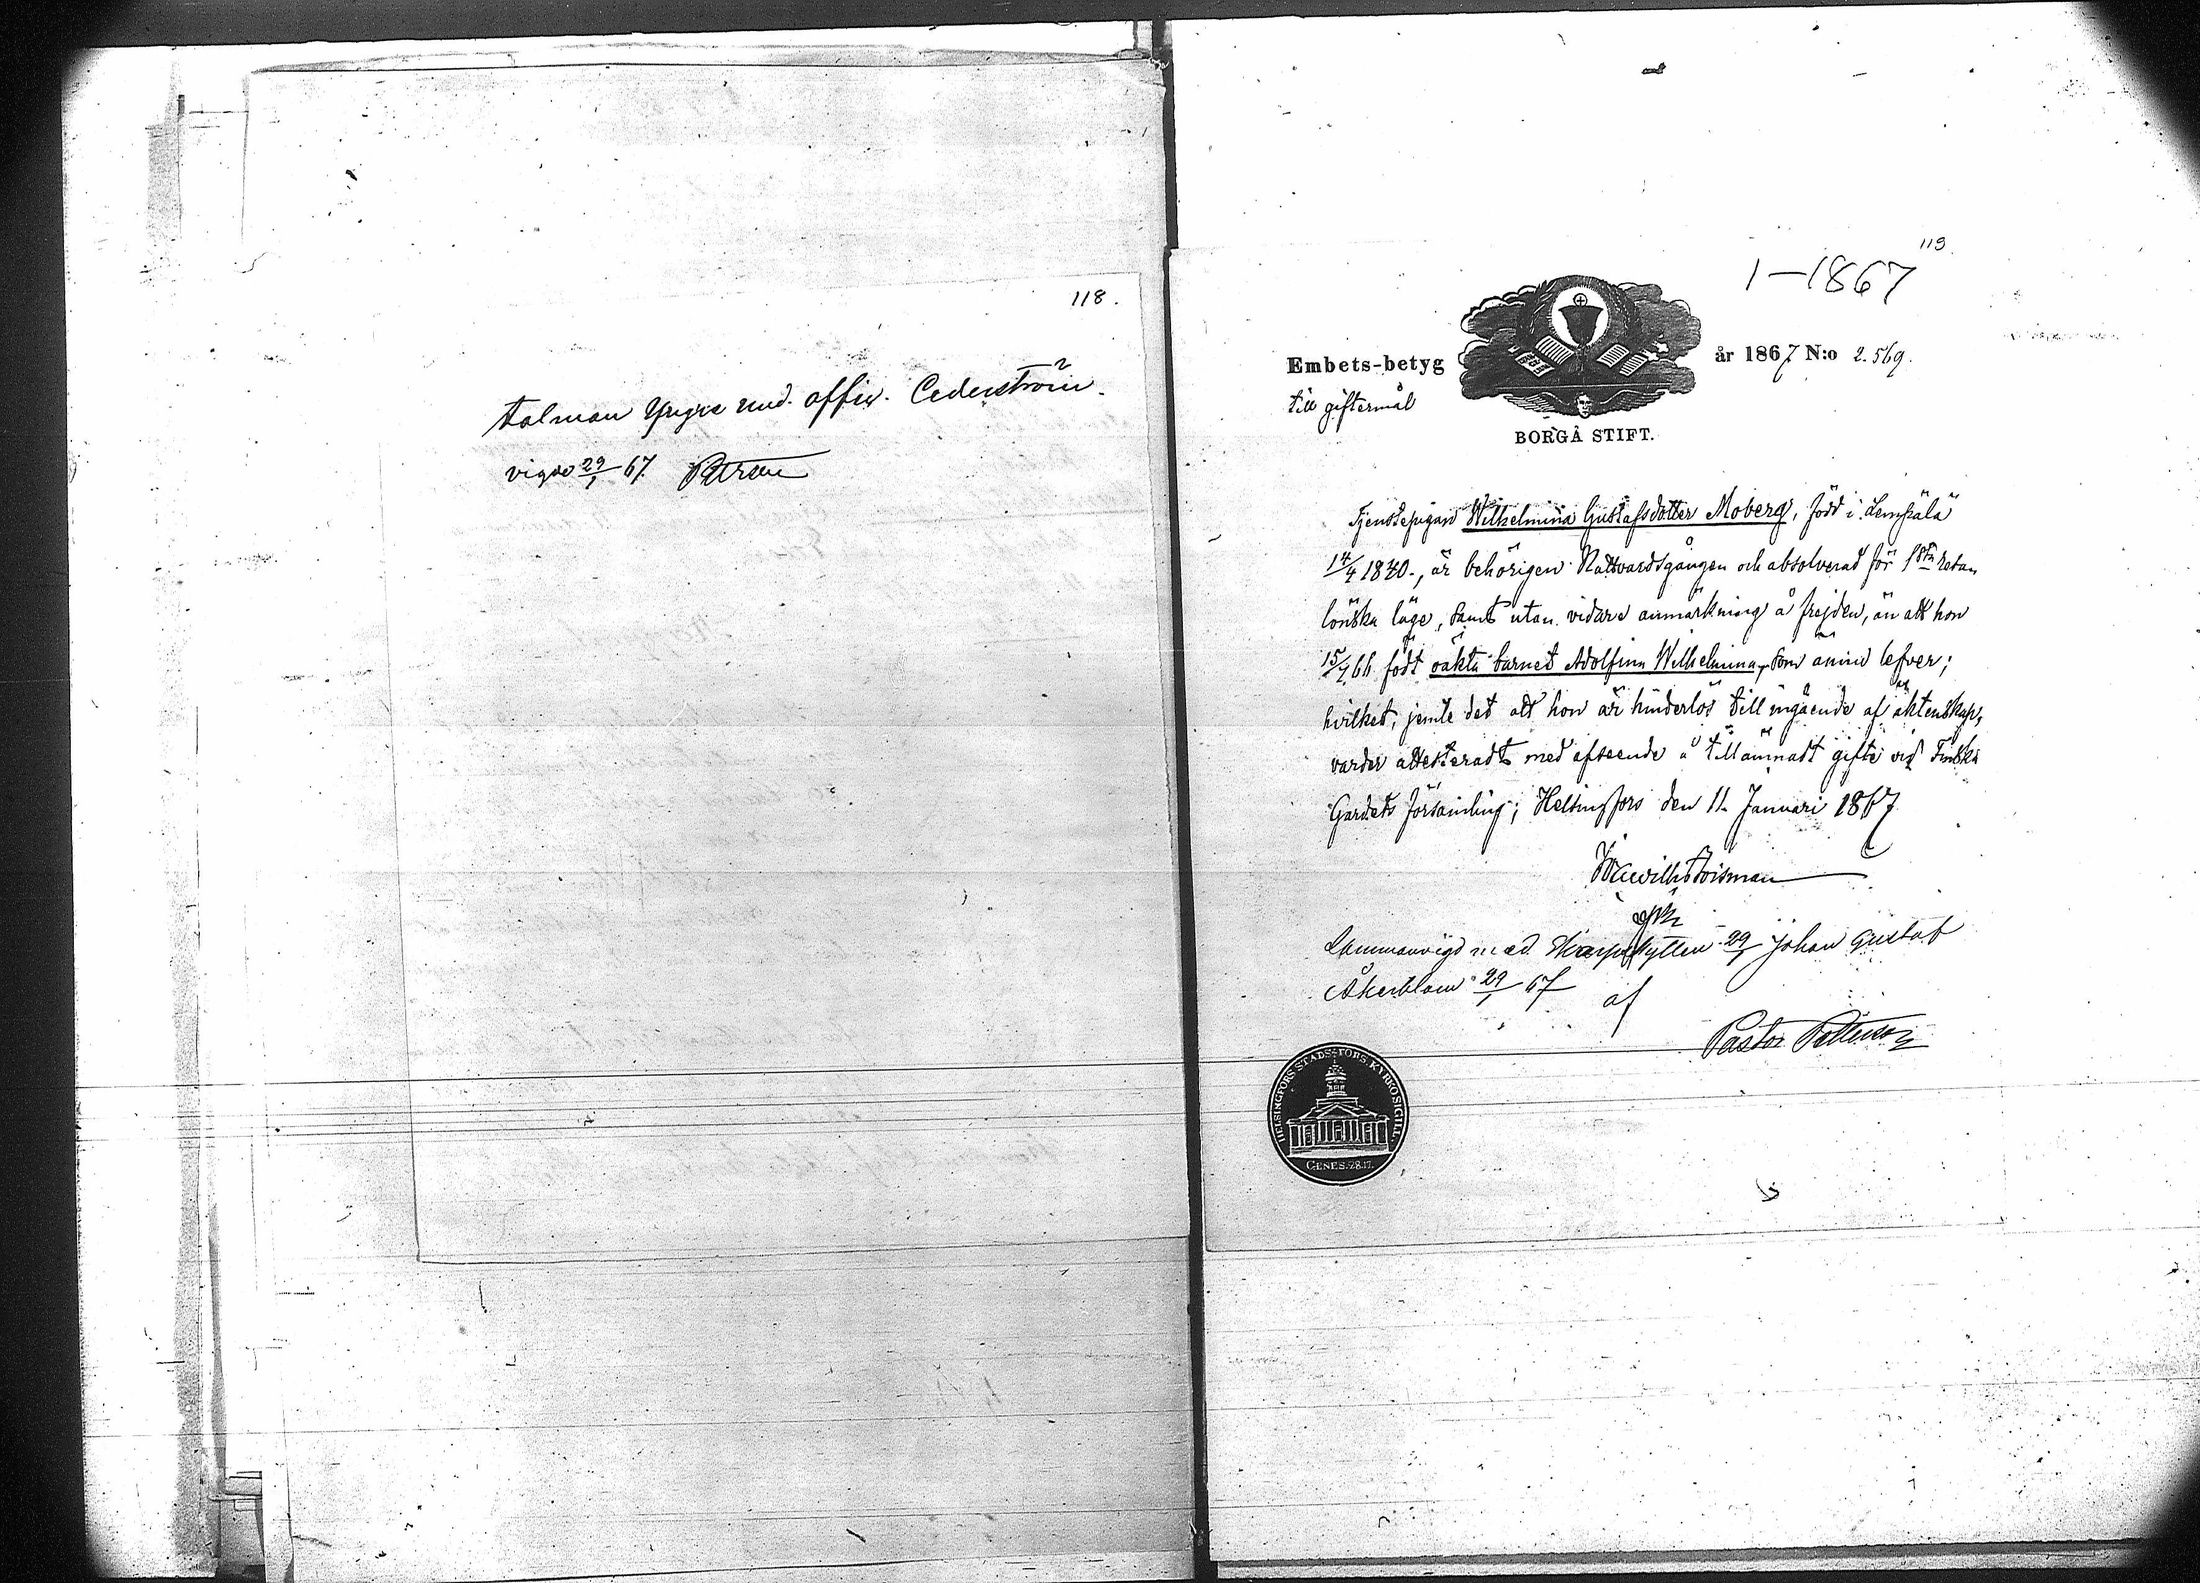 118.
talman Yngre und. offic. Cederström.
vigde 29/1 67.
119
1–1867
Embets-betyg år 1867 N:o 2.569.
till giftermål
BORGÅ STIFT.
Tjenstepigan Wilhelmina Gustafsdotter Moberg, född i Lempäälä
14/4 1840., är behörigen Nattvardsgången och absolverad för 1sta resan
lönska läge, samt utan vidare anmärkning å frejden, än att hon
66 födt oäkta barnet Adolfina Wilhelmina, som ännu lefver;
hvilket, jemte det att hon är hinderlös till ingående af äktenskap,
varder attesteradt med afseende å tillämnadt gifte vid Finska
Gardets församling; Helsingfors den 11. Januari 1867
Sammanvigd med Skarpskytten 29/1 Johan Gustaf
Åkerblom 29/1 67
af
Pastor Petterson
HELSINGFORS STADSFÖRS. KYRKOSIGILL.
GENES. 28.17.